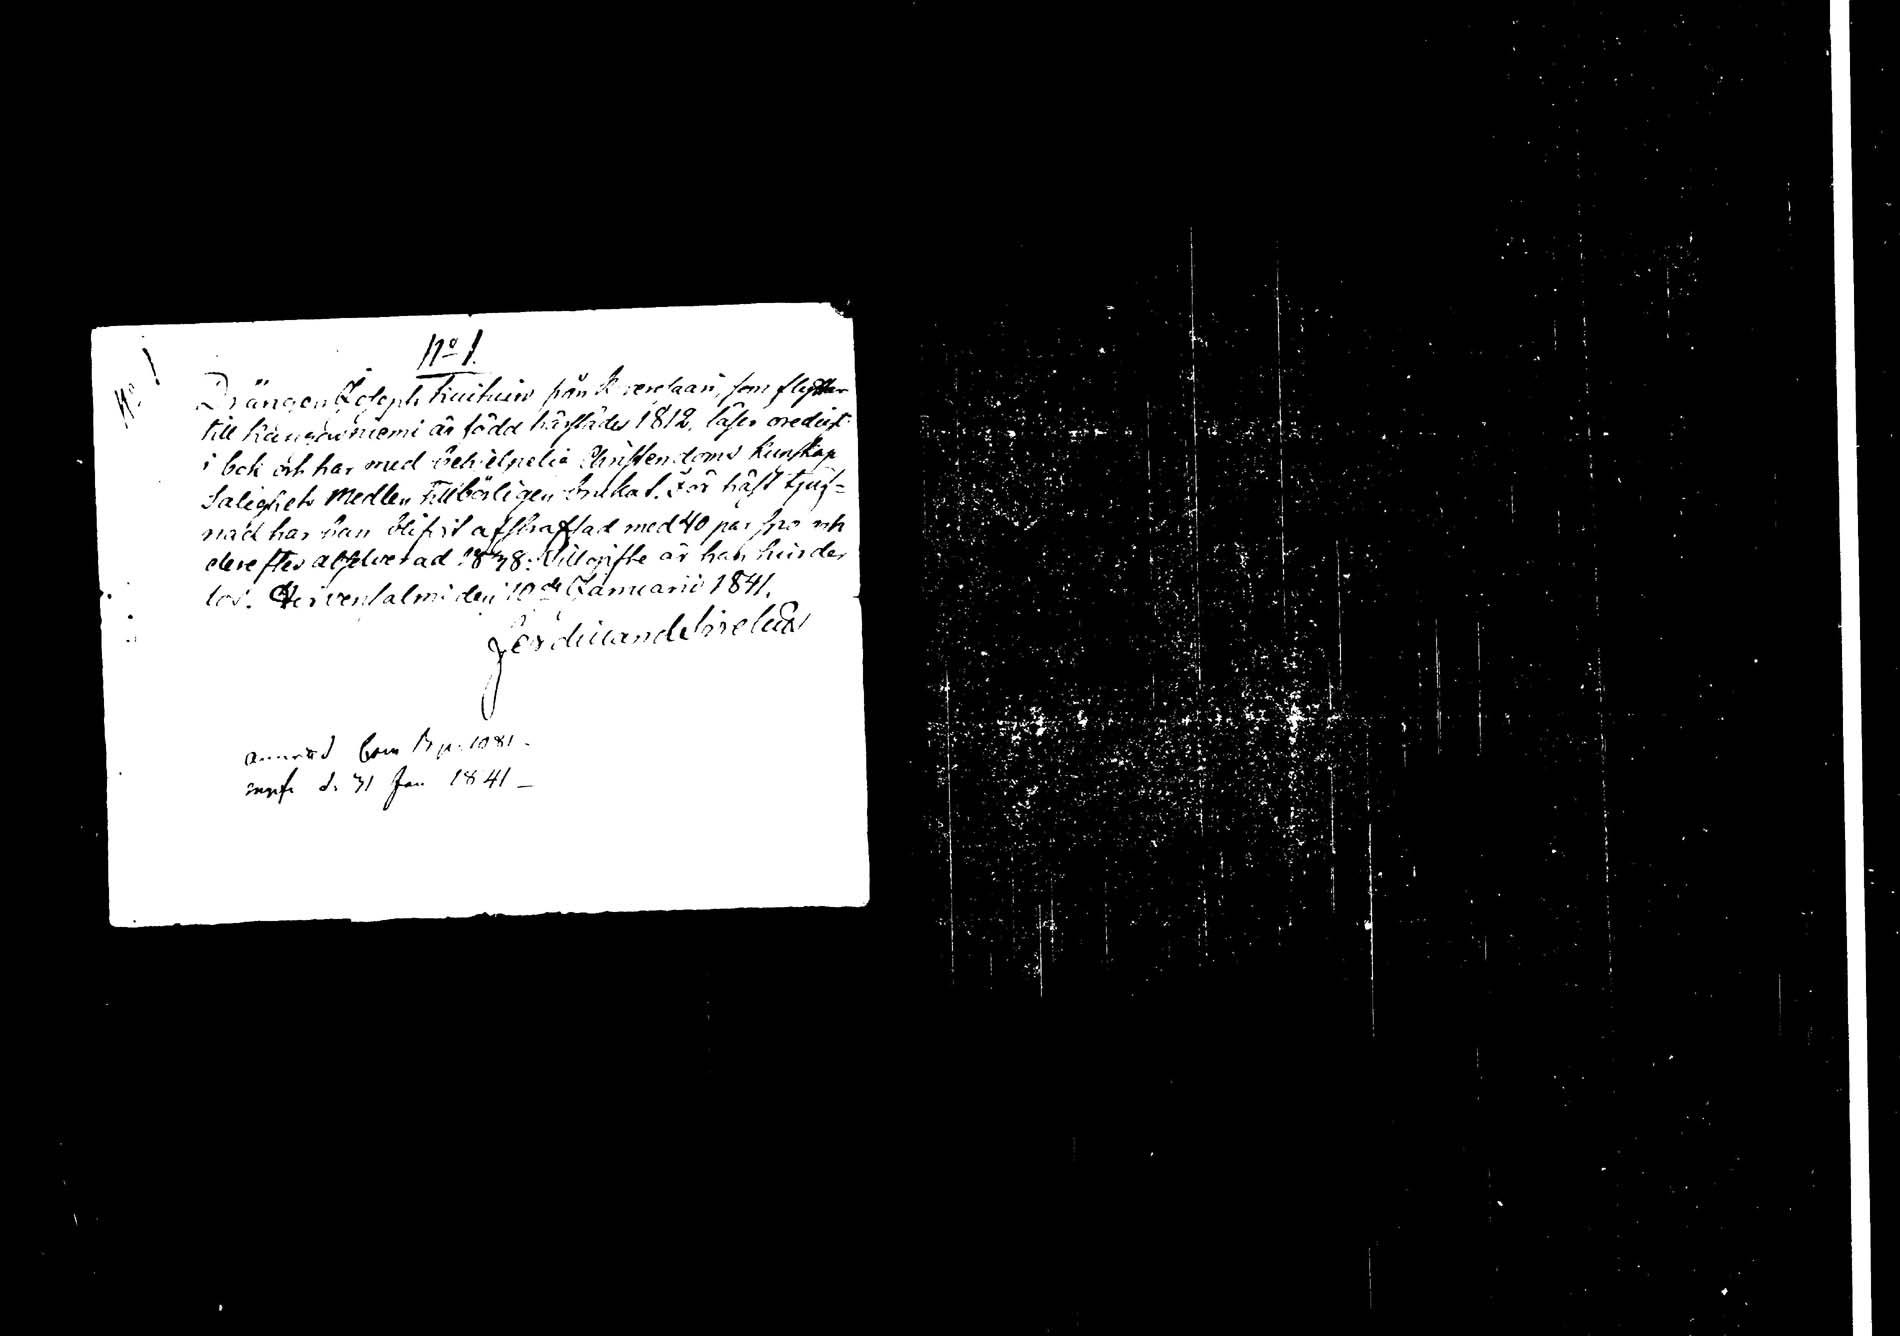 No 1.
No 1
Drängen Joseph Kuituin från Kverelaari, som flyttar
till Kangasniemi är född härstädes 1812, läser oredigt
i bok och har med behjelpelig Christendoms Kunskap
Salighets Medlen tillbörligen brukat. För häst tjuf=
nad har han blifvit afstraffad med 40 par spö och
derefter absolverad 1838. Till gifte är han hinder
lös. Hirvensalmi den 10de Januarii 1841.
Ferdinand Sirelius
anmäld Com B p. 1081 -
d. 31 Jan 1841 -